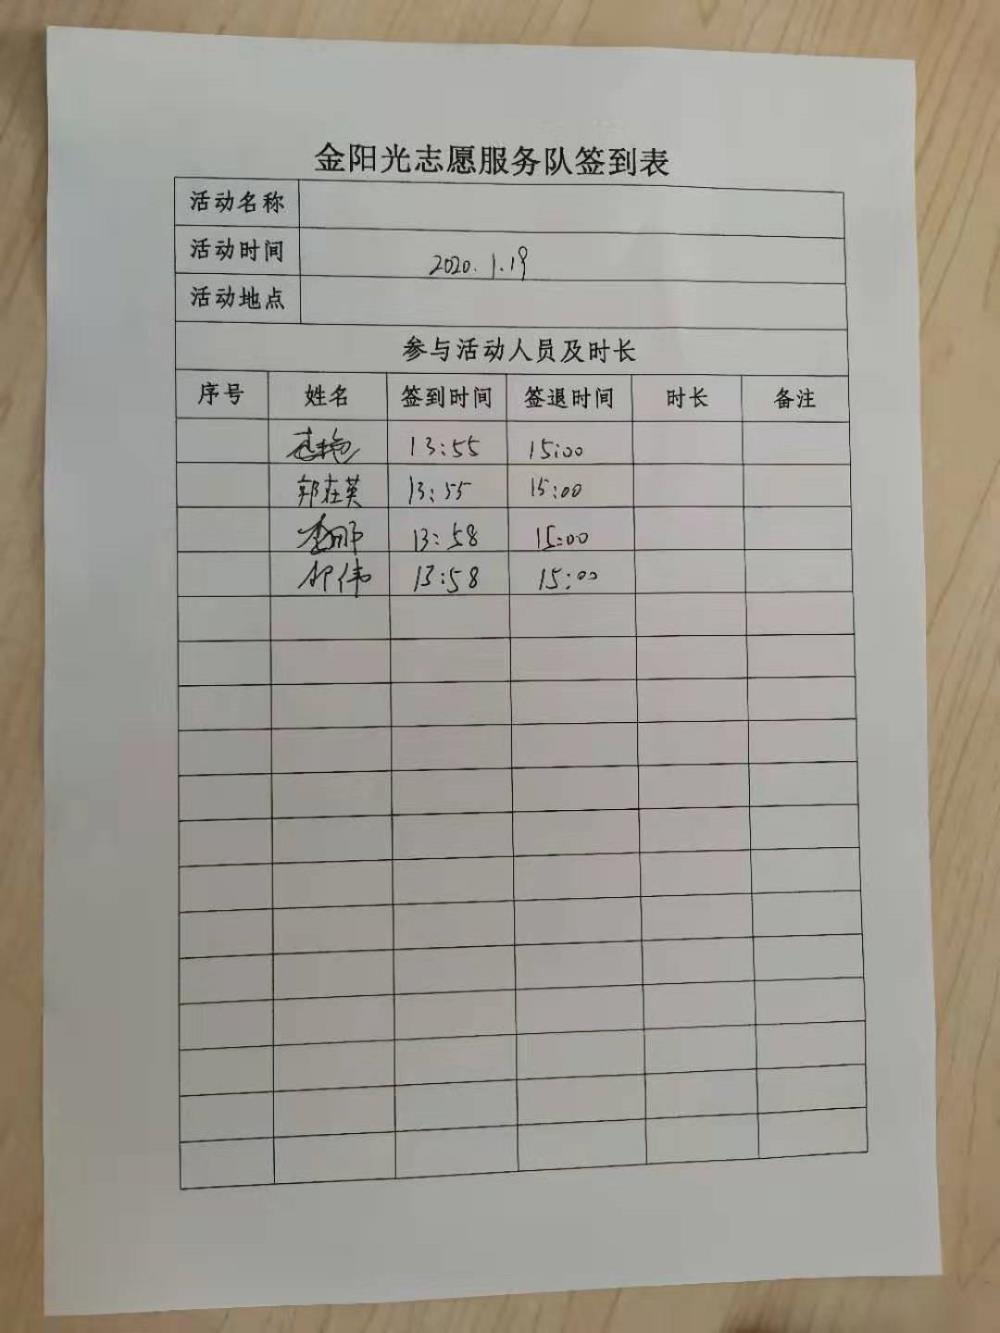 金阳光志愿服务队签到表
活动名称
活动时间 2020.1.19
活动地点
参与活动人员及时长
序号 姓名 签到时间 签退时间 时长 备注
13:55 15:00
郭在英 13:55 15:00
李娜 13:58 15:00
邹伟 13:58 15:00